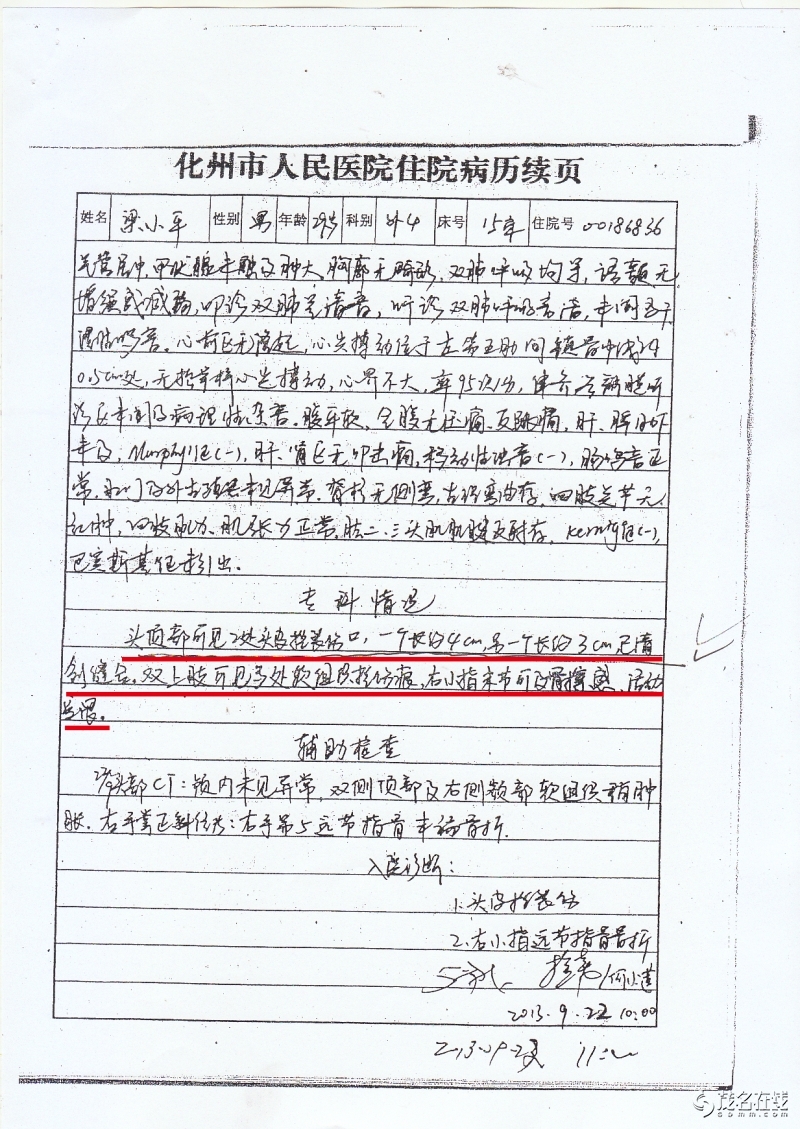 化州市人民医院住院病历续页
姓名 梁小平 性别 男 年龄 29岁 科别 外4 床号 15床 住院号 00186836
气管居中,甲状腺未触及肿大,胸廓无畸形,双肺呼吸均等,语颤无
增强或减弱,叩诊双肺呈清音,听诊双肺呼吸音清,未闻及干
湿性啰音。心前区无隆起,心尖搏动位于左第五肋间锁骨中线内
0.5cm处,无抬举样心尖搏动,心界不大,率95次/分,律齐,各瓣膜听
诊区未闻及病理性杂音。腹平软,全腹无压痛、反跳痛,肝、脾肋下
未及,Murphy征(-),肝、肾区无叩击痛,移动性浊音(-),肠鸣音正
常,肛门及外生殖器未见异常。脊柱无侧弯,生理弯曲存,四肢关节无
红肿,四肢肌力、肌张力正常,肱二、三头肌肌腱反射存,Kernig征(-),
巴宾斯基征未引出。
专科情况
头顶部可见2处头皮挫裂伤口,一个长约4cm,另一个长约3cm,已清
创缝合。双上肢可见多处软组织挫伤痕,右小指末节可及骨擦感,活动
受限。
辅助检查
头部CT:颅内未见异常,双侧顶部及右侧颞部软组织稍肿
胀。右手掌正斜位片:右手第5远节指骨末端骨折.
入院诊断:
1.头皮挫裂伤
2.右小指远节指骨骨折
2013.9.22 10:00
茂名在线